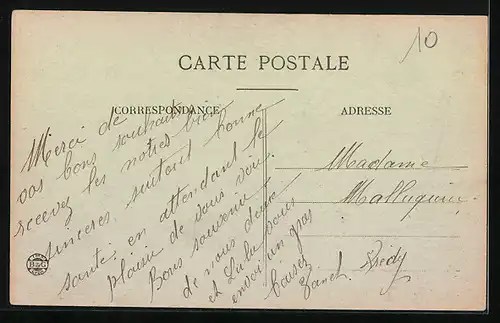 10
CARTE POSTALE
CORRESPONDANCE
ADRESSE
Merci de
vos bons souhaits
recevez les notres bien
sinceres, surtout bonne
santé, en attendant le
plaisir de vous voir.
Bons souvenirs
de nous deux
et Lulu vous
envoi un gros
baiser
Madame
Predy
B&G